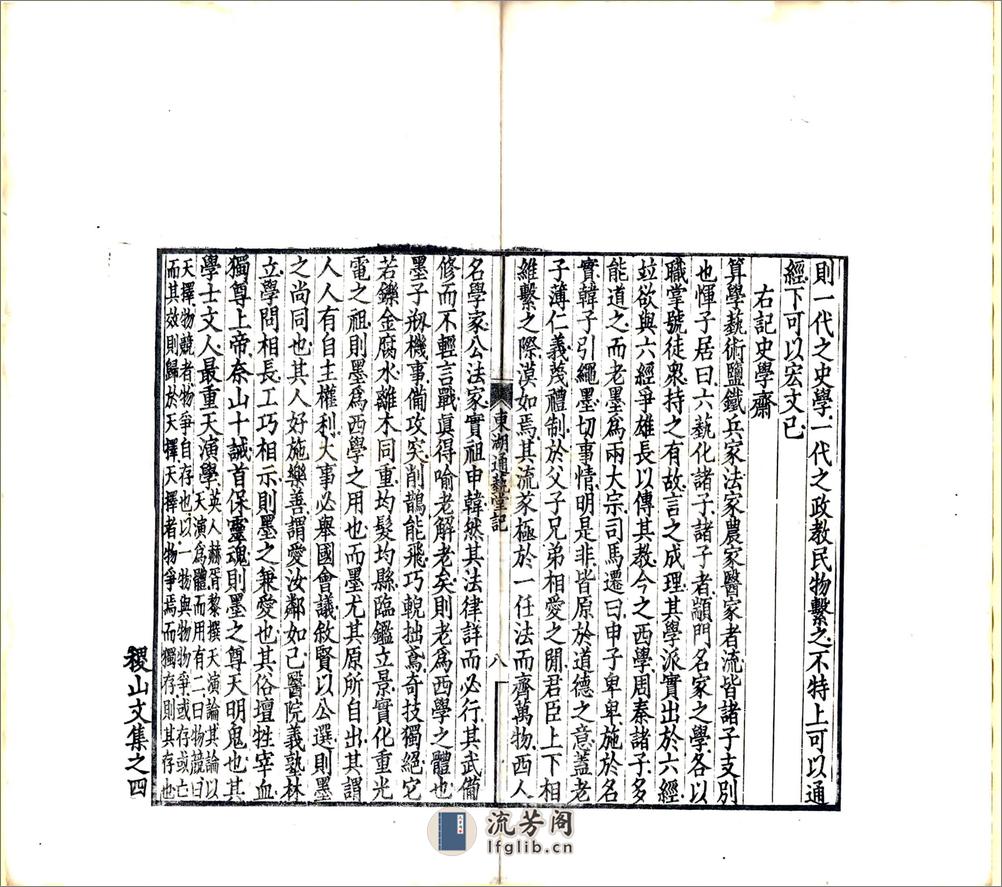 則一代之史學一代之政教民物繫之不特上可以通
經下可以宏文已
右記史學齋
算學藝術鹽鐵兵家法家農家醫家者流皆諸子支別
也惲子居曰六藝化諸子諸子者顓門名家之學各以
職掌號徒衆持之有故言之成理其學派實出於六經
竝欲與六經爭雄長以傳其教今之西學周秦諸子多
能道之而老墨爲兩大宗司馬遷曰申子卑卑施於名
實韓子引繩墨切事情明是非皆原於道德之意蓋老
子薄仁義蔑禮制於父子兄弟相愛之閒君臣上下相
維繫之際漠如焉其流豖極於一任法而齊萬物西人
東湖通藝堂記
八
名學家公法家實祖申韓然其法律詳而必行其武備
修而不輕言戰眞得喻老解老矣則老爲西學之體也
墨子剏機事備攻突削鵲能飛巧輗拙鳶奇技獨絕它
若鑠金腐水離木同重均髮均縣臨鑑立景實化重光
電之祖則墨爲西學之用也而墨尤其原所自出其謂
人人有自主權利大事必舉國會議敘賢以公選則墨
之尚同也其人好施樂善謂愛汝鄰如己醫院義塾林
立學問相長工巧相示則墨之兼愛也其俗壇牲宰血
獨尊上帝奈山十誡首保靈魂則墨之尊天明鬼也其
學士文人最重天演學英人赫胥黎撰天演論其論以
天演爲體而用有二曰物競曰
天擇物競者物爭自存也以一物與物物爭或存或亡
而其效則歸於天擇天擇者物爭焉而獨存則其存也
稷山文集之四
流芳阁
lfglib.cn